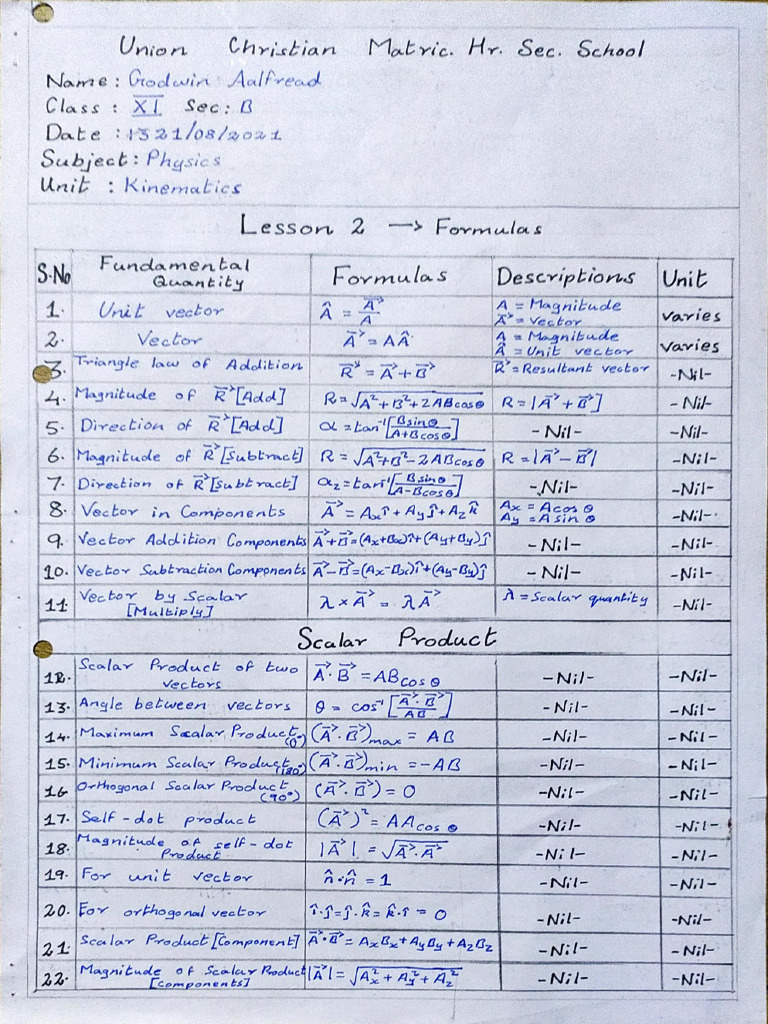 Union Christian Matric. Hr. Sec. School
Name : Godwin Aalfread
Class : XI Sec: B
Date : 21/08/2021
Subject: Physics
Unit : Kinematics
Lesson 2 → Formulas
S.No Fundamental Quantity Formulas Descriptions Unit
1. Unit vector Â = A⃗/A A = Magnitude A⃗ = Vector varies
2. Vector A⃗ = AÂ A = Magnitude Â = Unit vector varies
3. Triangle law of Addition R⃗ = A⃗ + B⃗ R⃗ = Resultant vector -Nil-
4. Magnitude of R⃗ [Add] R = √A²+B²+2ABcosθ R = |A⃗ + B⃗] -Nil-
5. Direction of R⃗ [Add] α = tan⁻¹[Bsinθ/A+Bcosθ] -Nil- -Nil-
6. Magnitude of R⃗ [subtract] R = √A²+B²-2ABcosθ R = |A⃗ - B⃗| -Nil-
7. Direction of R⃗ [subtract] α₂ = tan⁻¹[Bsinθ/A-Bcosθ] -Nil- -Nil-
8. Vector in Components A⃗ = Axî + Ayĵ + Azk̂ Ax = Acosθ Ay = Asinθ -Nil-
9. Vector Addition Components A⃗+B⃗=(Ax+Bx)î+(Ay+By)ĵ -Nil- -Nil-
10. Vector Subtraction Components A⃗-B⃗=(Ax-Bx)î+(Ay-By)ĵ -Nil- -Nil-
11. Vector by Scalar [Multiply] λ × A⃗ = λA⃗ λ = Scalar quantity -Nil-
Scalar Product
12. Scalar Product of two vectors A⃗·B⃗ = ABcosθ -Nil- -Nil-
13. Angle between vectors θ = cos⁻¹[A⃗·B⃗/AB] -Nil- -Nil-
14. Maximum Scalar Product (0°) (A⃗·B⃗)max = AB -Nil- -Nil-
15. Minimum Scalar Product (180°) (A⃗·B⃗)min = -AB -Nil- -Nil-
16 Orthogonal Scalar Product (90°) (A⃗·B⃗) = 0 -Nil- -Nil-
17. Self-dot product (A⃗)² = AAcosθ -Nil- -Nil-
18. Magnitude of self-dot Product |A⃗| = √A⃗·A⃗ -Nil- -Nil-
19. For unit vector n̂·n̂ = 1 -Nil- -Nil-
20. For orthogonal vector î·ĵ = ĵ·k̂ = k̂·î = 0 -Nil- -Nil-
21 Scalar Product [Component] A⃗·B⃗ = AxBx + AyBy + AzBz -Nil- -Nil-
22. Magnitude of Scalar Product [components] |A⃗| = √Ax² + Ay² + Az² -Nil- -Nil-